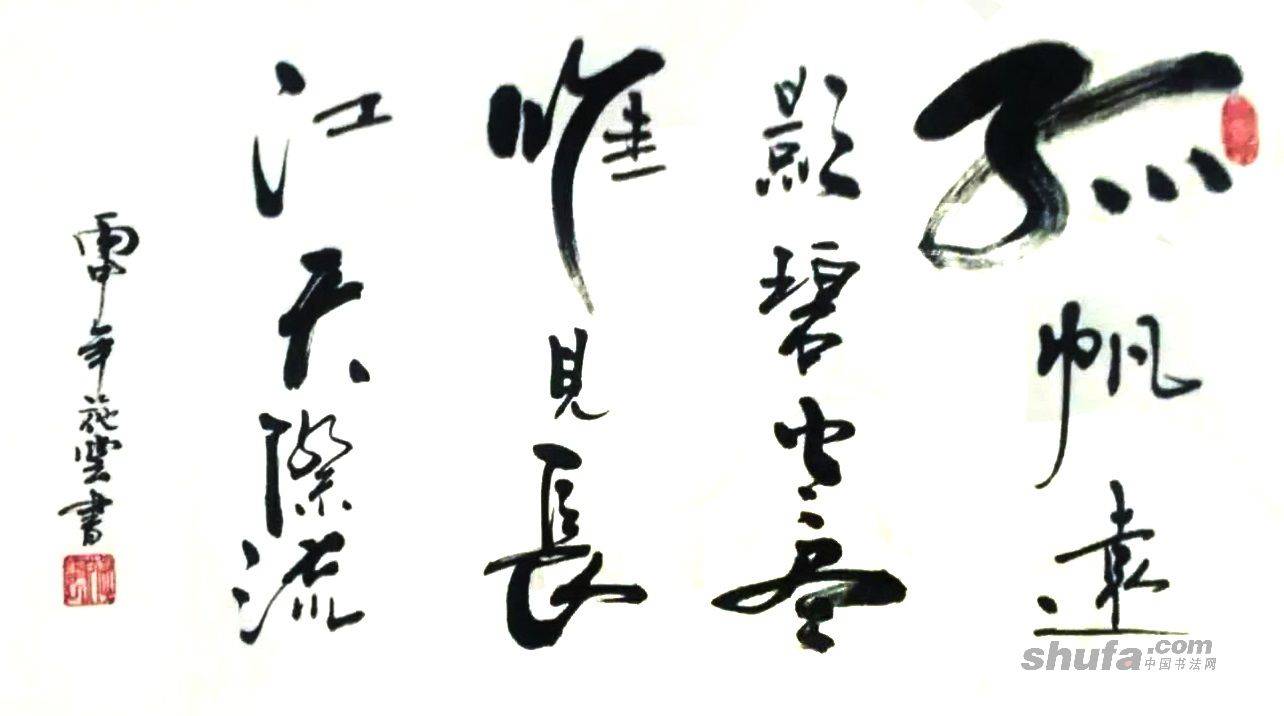 孤帆遠
影碧空盡
唯見長
江天際流
年花雲書
shufa.com
中国书法网